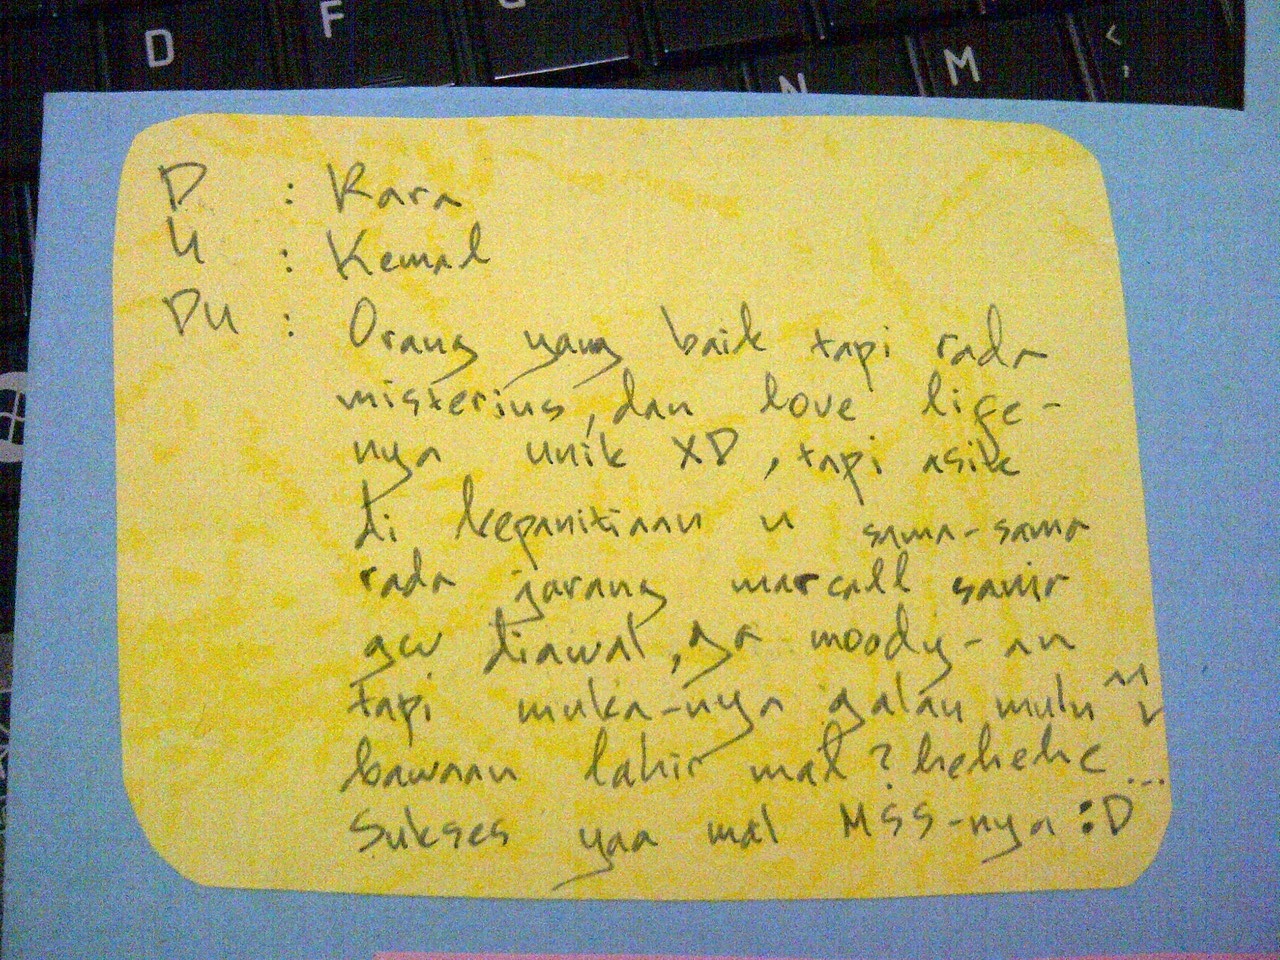 D F G
N M < ,
D : Rara
U : Kemal
DU : Orang yang baik tapi rada
misterius, dan love life-
nya unik XD, tapi asik
di kepanitiaan u sama-sama
rada garang marcall samir
gw diawal, ga moody-an
tapi muka-nya galau mulu ^^v
bawaan lahir mal? hehehe...
Sukses yaa mal MSS-nya :D